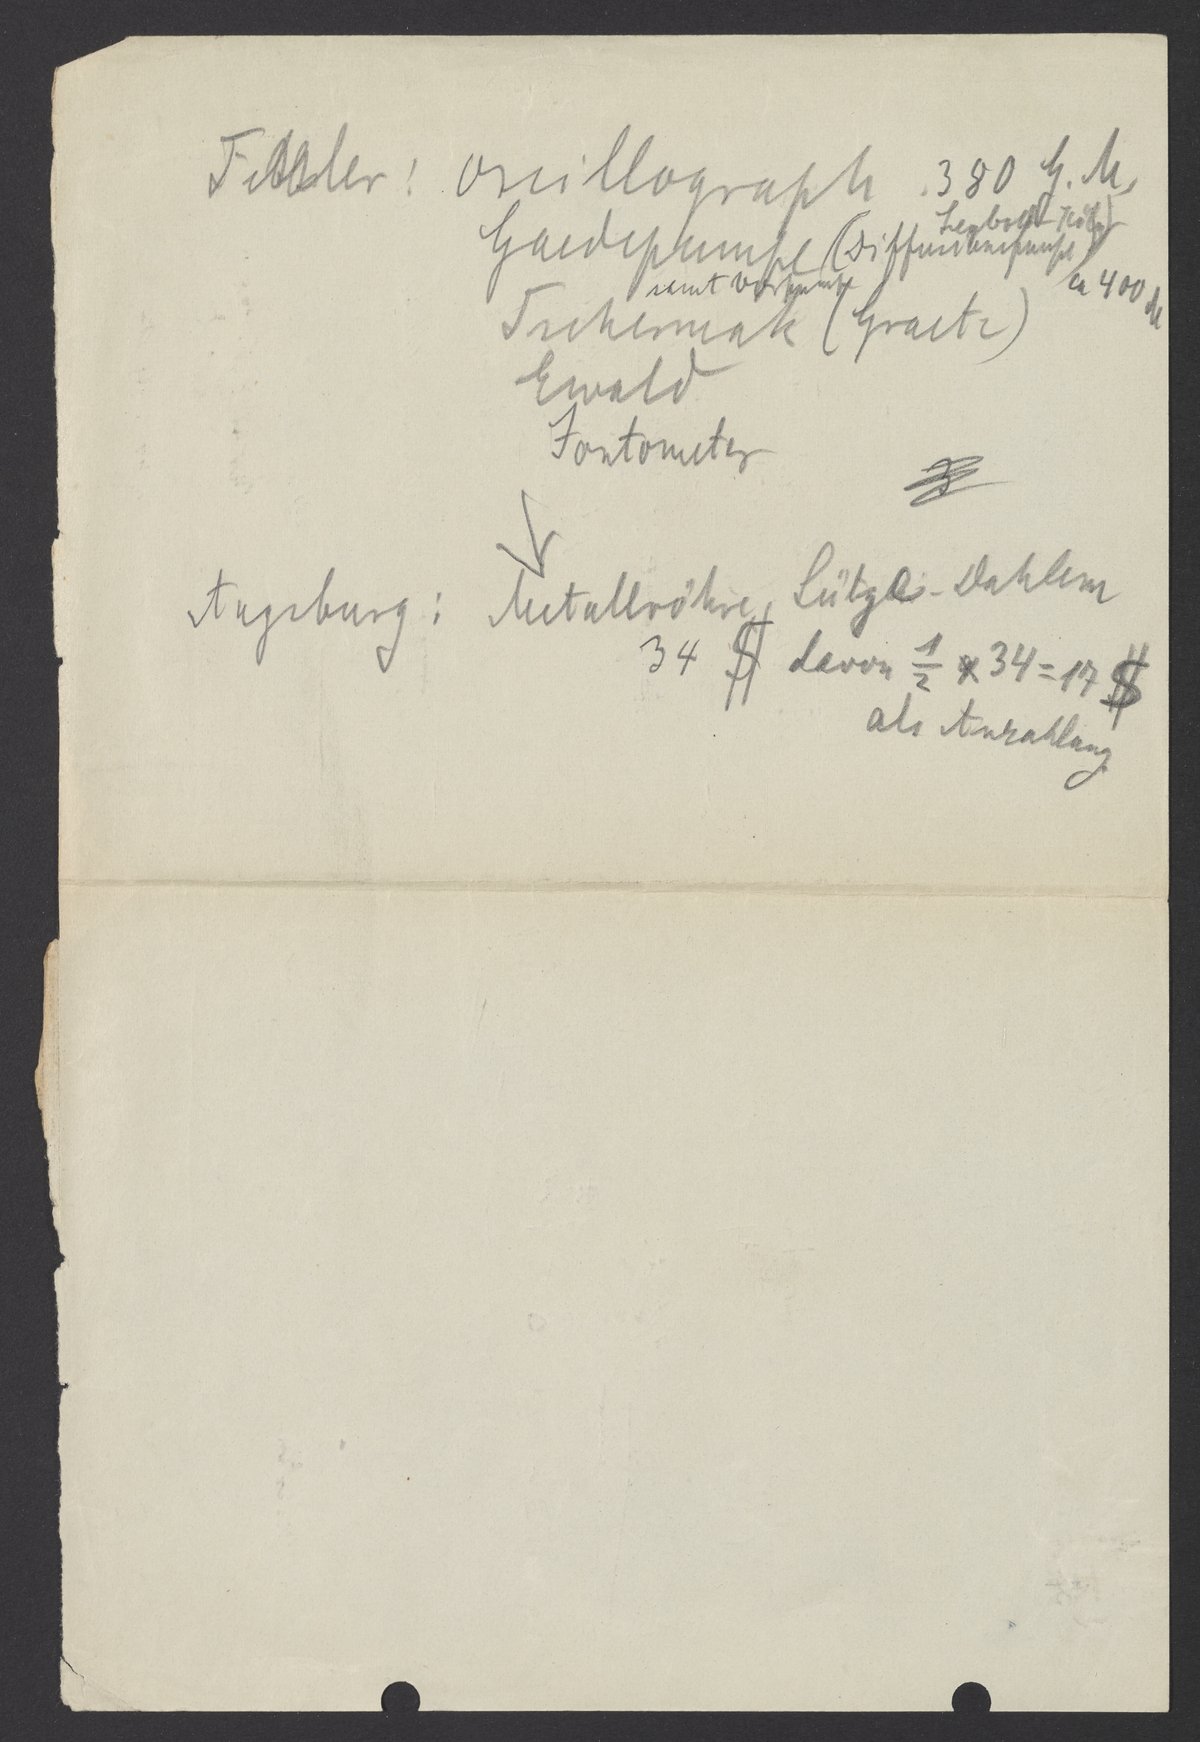 : Oscillograph 380 G. M.
Gaedepumpe (Diffusionspumpe
Leybold Köln)
samt Vorpumpe ca 400 M
Tschermak (Graetz)
Ewald
Iontometer
Augsburg: Metallröhre, - Dahlem
34 $ davon 1/2 x 34 = 17 $
als Anzahlung